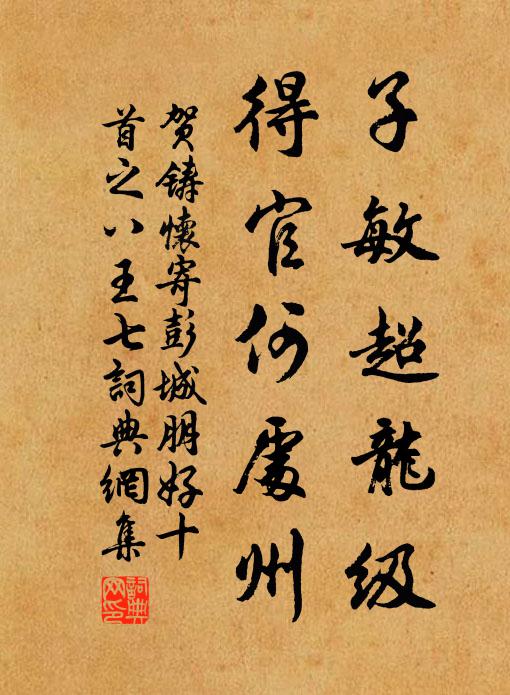 子敏超龍级
得官何處州
贺鋳懷寄彭城朋好十
首之八王七詞典網集
詞典網印